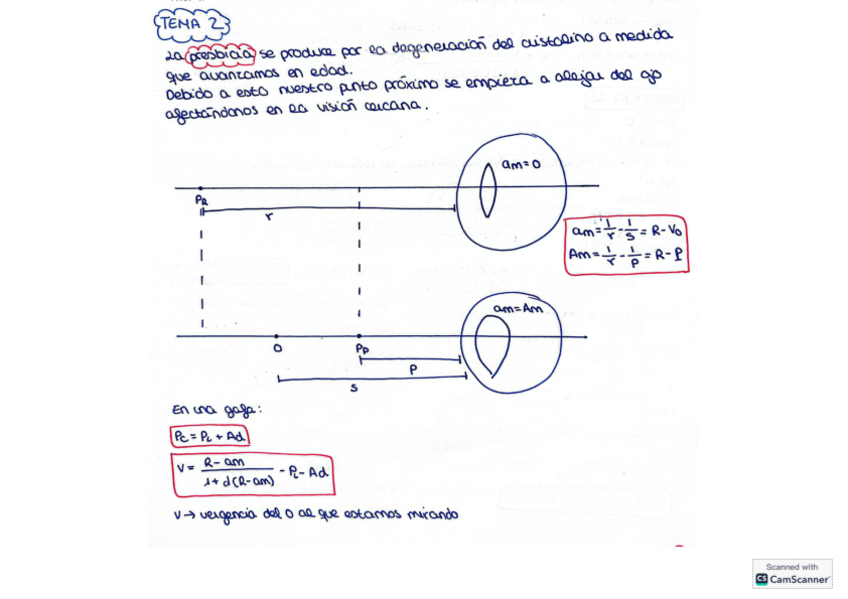 TEMA 2
La presbicia se produce por la degeneración del cristalino a medida
que avanzamos en edad.
Debido a esto nuestro punto próximo se empieza a alejar del ojo
afectándonos en la visión cercana.
am=0
PR
r
am = 1/r - 1/s = R - Vo
Am = 1/r - 1/p = R - P
am=Am
O
Pp
p
s
En una gafa:
Pc = PL + Ad
V = R - am / 1 + d(R - am) - PL - Ad
V → vergencia del O al que estamos mirando
Scanned with
CS CamScanner